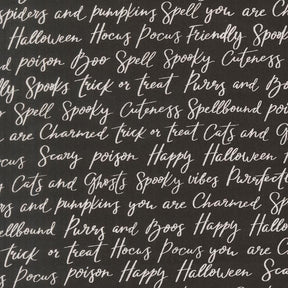 spiders and pumpkins Spell you are Cha
Halloween Hocus Pocus Friendly Spook
d poison Boo Spell Spooky Cuteness
lly Spooks trick or treat Purrs and B
y Spell Spooky Cuteness Spellbound po
are Charmed trick or treat Cats and G
ocus Scary poison Happy Halloween
y Cats and Ghosts Spooky vibes Purrfect
rs and pumpkins you are Charmed S
ellbound Purrs and Boos Happy Hallo
trick or treat Hocus Pocus you are C
s Pocus poison Happy Halloween